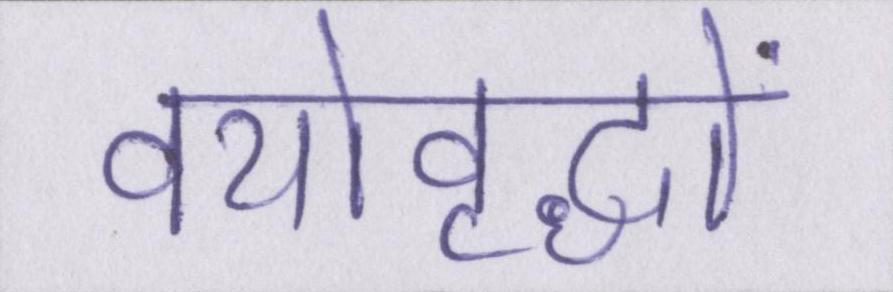 वयोवृद्धों